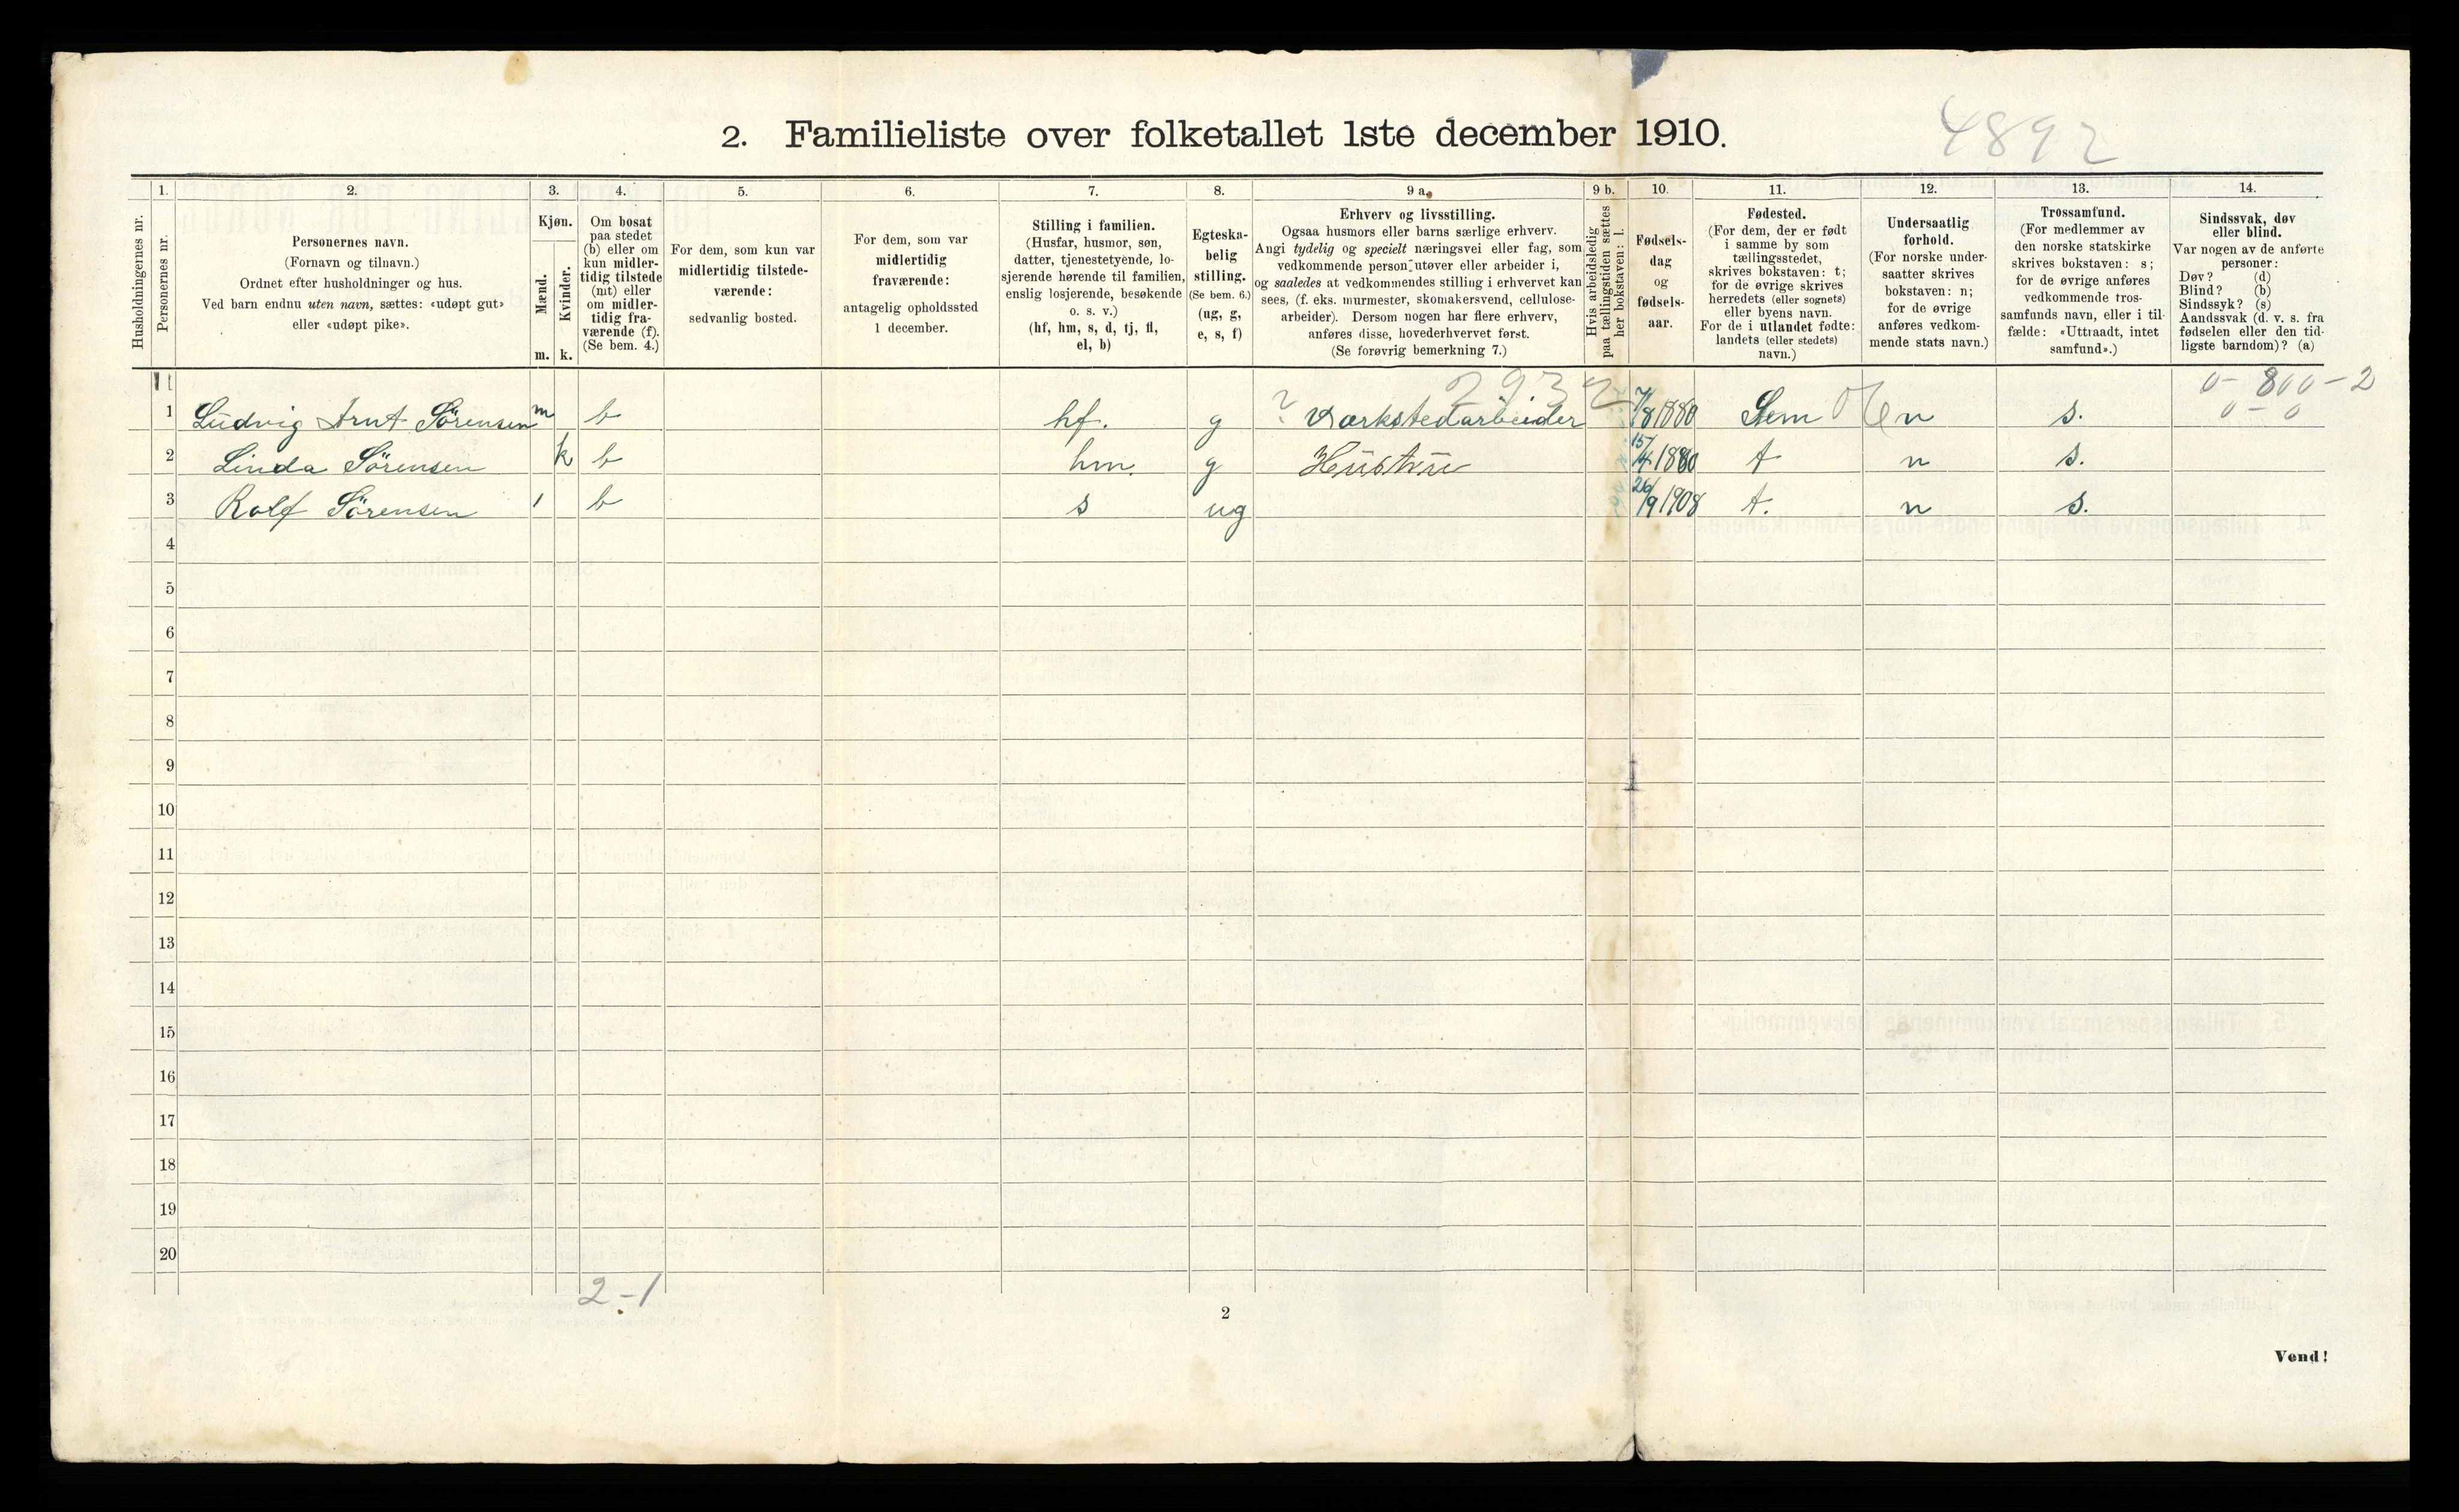 2. Familieliste over folketallet 1ste december 1910.
4892
1. 2. 3. 4. 5. 6. 7. 8. 9 a. 9 b. 10. 11. 12. 13. 14.
Husholdningernes nr.
Personernes nr.
Personernes navn.
(Fornavn og tilnavn.)
Ordnet efter husholdninger og hus.
Ved barn endnu uten navn, sættes: «udøpt gut»
eller «udøpt pike».
Kjøn.
Mænd.
Kvinder.
m. k.
Om bosat
paa stedet
(b) eller om
kun midler-
tidig tilstede
(mt) eller
om midler-
tidig fra-
værende (f).
(Se bem. 4.)
For dem, som kun var
midlertidig tilstede-
værende:
sedvanlig bosted.
For dem, som var
midlertidig
fraværende:
antagelig opholdssted
1 december.
Stilling i familien.
(Husfar, husmor, søn,
datter, tjenestetyende, lo-
sjerende hørende til familien,
enslig losjerende, besøkende
o. s. v.)
(hf, hm, s, d, tj, fl,
el, b)
Egteska-
belig
stilling.
(Se bem. 6.)
(ug, g,
e, s, f)
Erhverv og livsstilling.
Ogsaa husmors eller barns særlige erhverv.
Angi tydelig og specielt næringsvei eller fag, som
vedkommende person utøver eller arbeider i,
og saaledes at vedkommendes stilling i erhvervet kan
sees, (f. eks. murmester, skomakersvend, cellulose-
arbeider). Dersom nogen har flere erhverv,
anføres disse, hovederhvervet først.
(Se forøvrig bemerkning 7.)
Hvis arbeidsledig
paa tællingstiden sættes
her bokstaven: l.
Fødsels-
dag
og
fødsels-
aar.
Fødested.
(For dem, der er født
i samme by som
tællingsstedet,
skrives bokstaven: t;
for de øvrige skrives
herredets (eller sognets)
eller byens navn.
For de i utlandet fødte:
landets (eller stedets)
navn.)
Undersaatlig
forhold.
(For norske under-
saatter skrives
bokstaven: n;
for de øvrige
anføres vedkom-
mende stats navn.)
Trossamfund.
(For medlemmer av
den norske statskirke
skrives bokstaven: s;
for de øvrige anføres
vedkommende tros-
samfunds navn, eller i til-
fælde: «Uttraadt, intet
samfund».)
Sindssvak, døv
eller blind.
Var nogen av de anførte
personer:
Døv? (d)
Blind? (b)
Sindssyk? (s)
Aandssvak (d. v. s. fra
fødselen eller den tid-
ligste barndom)? (a)
2932 0-800-2
1 Ludvig Arnt Sörensen m b hf. g ? Værkstedarbeider 7/8 1880 Sem n s. 0-0
2 Linda Sörensen k b hm. g Hustru 15/4 1880 t n s.
3 Rolf Sörensen 1 b s ug 26/9 1908 t. n s.
4
5
6
7
8
9
10
11
12
13
14
15
16
17
18
19
20
2-1
2
Vend!